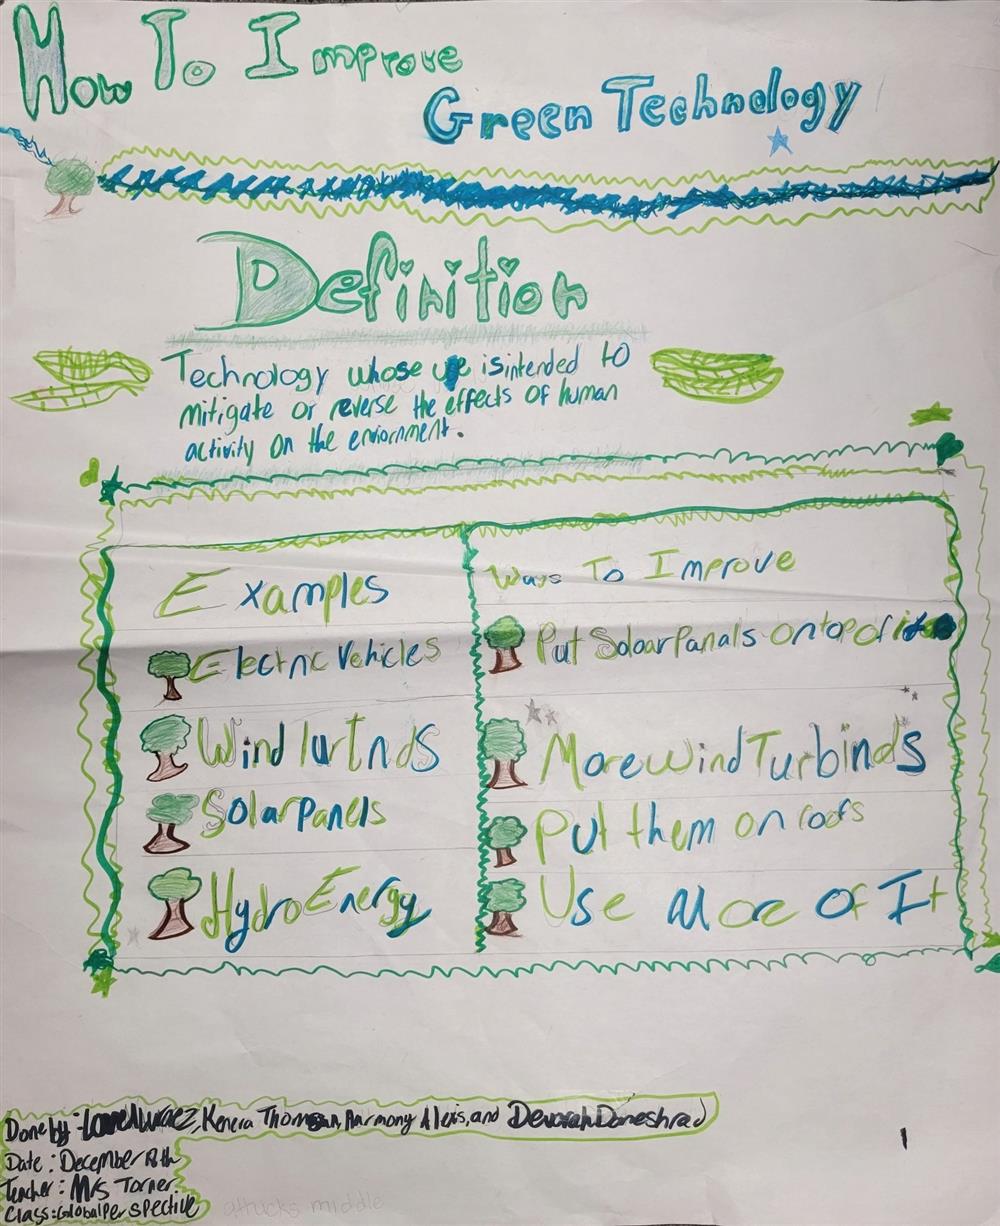 How To Improve
Green Technology
Definition
Technology whose use is intended to
mitigate or reverse the effects of human
activity on the enviornment.
Examples
Ways To Improve
Electric Vehicles
Put Soloar Panals on top of it
Wind Turtnds
More Wind Turbinds
Solar Panels
Put them on roofs
Hydro Energy
Use More of It
Done by: Thomson, Harmony Alexis, and Devorah Doneshrad
Date: December
Teacher: Mrs Torner
Class: Global Perspective
attucks middle
1